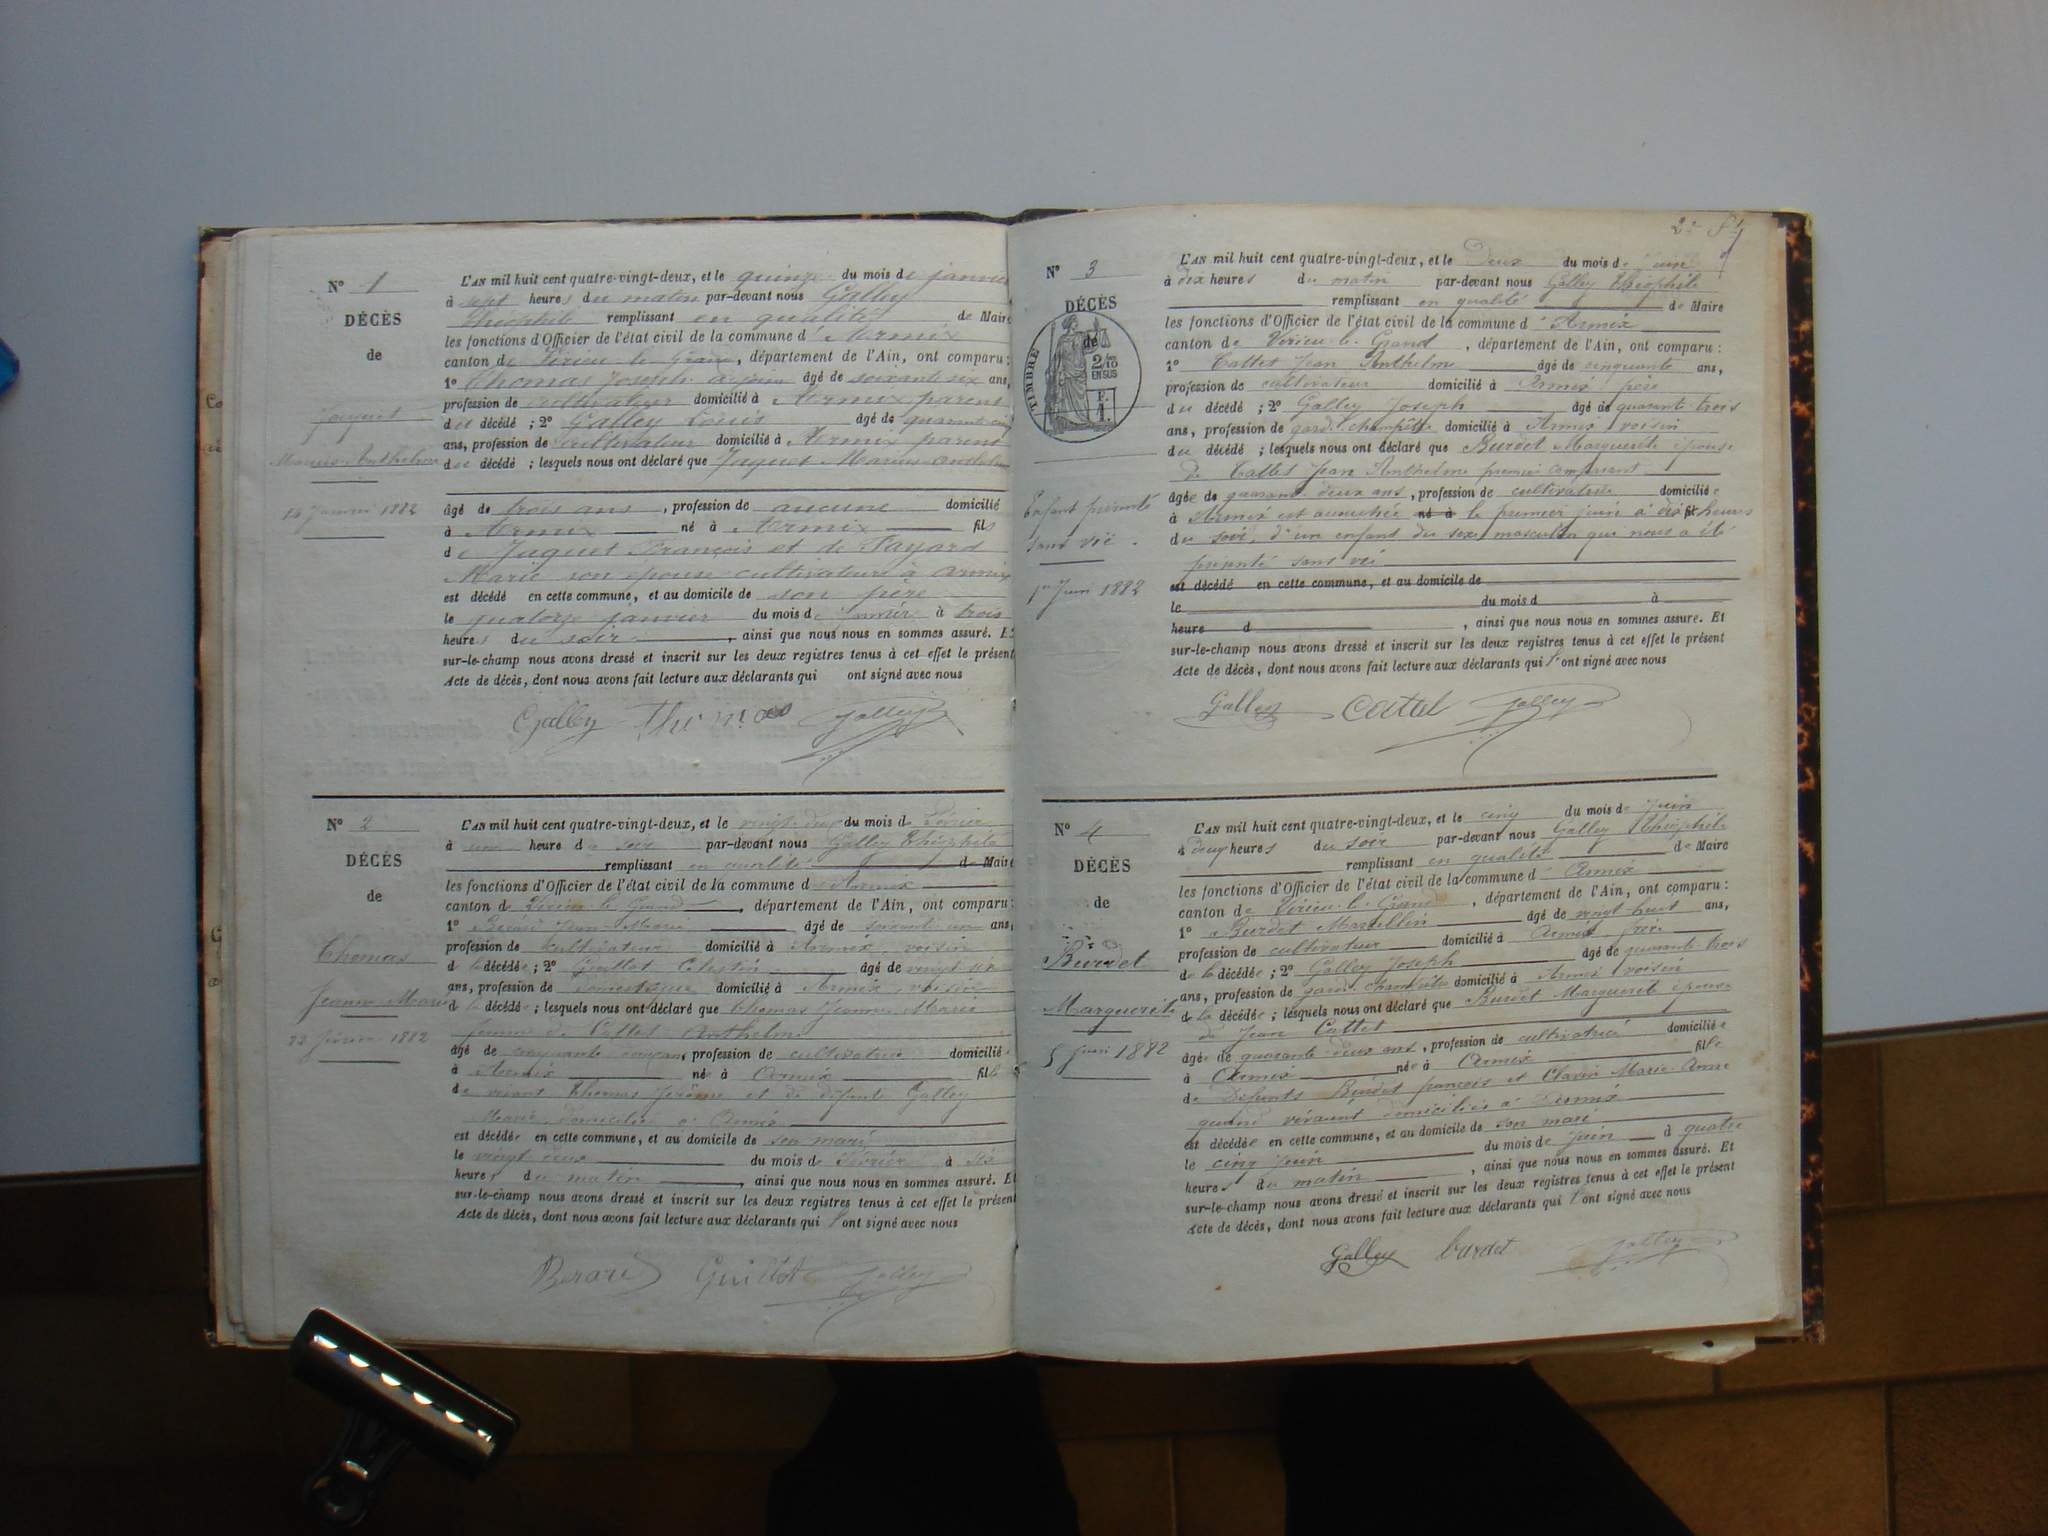 N° 1
DÉCÈS
de
Jaquet
Marius Anthelme
14 Janvier 1882
L'AN mil huit cent quatre-vingt-deux, et le quinze du mois de janvier
à sept heures du matin par-devant nous Galley
Théophile remplissant en qualité de Maire
les fonctions d'Officier de l'état civil de la commune d' Armix
canton de Virieu-le-Grand, département de l'Ain, ont comparu :
1° Thomas Joseph âgé de soixante six ans,
profession de cultivateur domicilié à Armix parent
du décédé ; 2° Galley Louis âgé de quarante cinq
ans, profession de cultivateur domicilié à Armix parent
du décédé ; lesquels nous ont déclaré que Jaquet Marius Anthelme
âgé de trois ans, profession de aucune domicilié
à Armix né à Armix fils
de Jaquet François et de Fayard
Marie son épouse cultivateurs à Armix
est décédé en cette commune, et au domicile de son père
le quatorze janvier du mois de janvier à trois
heures du soir, ainsi que nous nous en sommes assuré. Et
sur-le-champ nous avons dressé et inscrit sur les deux registres tenus à cet effet le présent
Acte de décès, dont nous avons fait lecture aux déclarants qui ont signé avec nous
Galley Thomas Galley
N° 2
DÉCÈS
de
Thomas
Jeanne Marie
22 février 1882
L'AN mil huit cent quatre-vingt-deux, et le vingt-deux du mois de Février
à une heure du soir par-devant nous Galley Théophile
remplissant en qualité de Maire
les fonctions d'Officier de l'état civil de la commune d' Armix
canton de Virieu-le-Grand, département de l'Ain, ont comparu :
1° Jean Marie âgé de soixante un ans,
profession de cultivateur domicilié à Armix voisin
de la décédée ; 2° Guillot Célestin âgé de vingt six
ans, profession de domestique domicilié à Armix voisin
de la décédée ; lesquels nous ont déclaré que Thomas Jeanne Marie
femme de Cattet Anthelme
âgé de cinquante, profession de cultivatrice domicilié
à Armix née à Armix fille
de vivant Thomas Jérôme et de défunte Galley
Marie domiciliés à Armix
est décédée en cette commune, et au domicile de son mari
le vingt deux du mois de Février à six
heures du matin, ainsi que nous nous en sommes assuré. Et
sur-le-champ nous avons dressé et inscrit sur les deux registres tenus à cet effet le présent
Acte de décès, dont nous avons fait lecture aux déclarants qui ont signé avec nous
Berard Guillot Galley
N° 3
DÉCÈS
de
TIMBRE
2/10
EN SUS
F.
1.
Enfant présenté
sans vie
1er Juin 1882
L'AN mil huit cent quatre-vingt-deux, et le Deux du mois de Juin
à dix heures du matin par-devant nous Galley Théophile
remplissant en qualité de Maire
les fonctions d'Officier de l'état civil de la commune d' Armix
canton de Virieu-le-Grand, département de l'Ain, ont comparu :
1° Cattet Jean Anthelme âgé de cinquante ans,
profession de cultivateur domicilié à Armix père
du décédé ; 2° Galley Joseph âgé de quarante-trois
ans, profession de garde champêtre domicilié à Armix voisin
du décédé ; lesquels nous ont déclaré que Burdet Marguerite épouse
de Cattet Jean Anthelme premier comparant
âgée de quarante-deux ans, profession de cultivatrice domiciliée
à Armix est accouchée né à le premier juin à dix fil heures
du soir, d'un enfant du sexe masculin qui nous a été
présenté sans vie
est décédé en cette commune, et au domicile de
le du mois d à
heure d, ainsi que nous nous en sommes assuré. Et
sur-le-champ nous avons dressé et inscrit sur les deux registres tenus à cet effet le présent
Acte de décès, dont nous avons fait lecture aux déclarants qui ont signé avec nous
Galley Cattet Galley
N° 4
DÉCÈS
de
Burdet
Marguerite
5 Juin 1882
L'AN mil huit cent quatre-vingt-deux, et le cinq du mois de Juin
à deux heures du soir par-devant nous Galley Théophile
remplissant en qualité de Maire
les fonctions d'Officier de l'état civil de la commune d' Armix
canton de Virieu-le-Grand, département de l'Ain, ont comparu :
1° Burdet Marcellin âgé de vingt huit ans,
profession de cultivateur domicilié à Armix frère
de la décédée ; 2° Galley Joseph âgé de quarante-trois
ans, profession de garde champêtre domicilié à Armix voisin
de la décédée ; lesquels nous ont déclaré que Burdet Marguerite épouse
de Jean Cattet
âgée de quarante-deux ans, profession de cultivatrice domiciliée
à Armix née à Armix fille
de Défunts Burdet françois et Clavin Marie-Anne
quand vivaient domiciliés à Armix
est décédée en cette commune, et au domicile de son mari
le cinq juin du mois de juin à quatre
heures du matin, ainsi que nous nous en sommes assuré. Et
sur-le-champ nous avons dressé et inscrit sur les deux registres tenus à cet effet le présent
Acte de décès, dont nous avons fait lecture aux déclarants qui ont signé avec nous
Galley burdet Galley